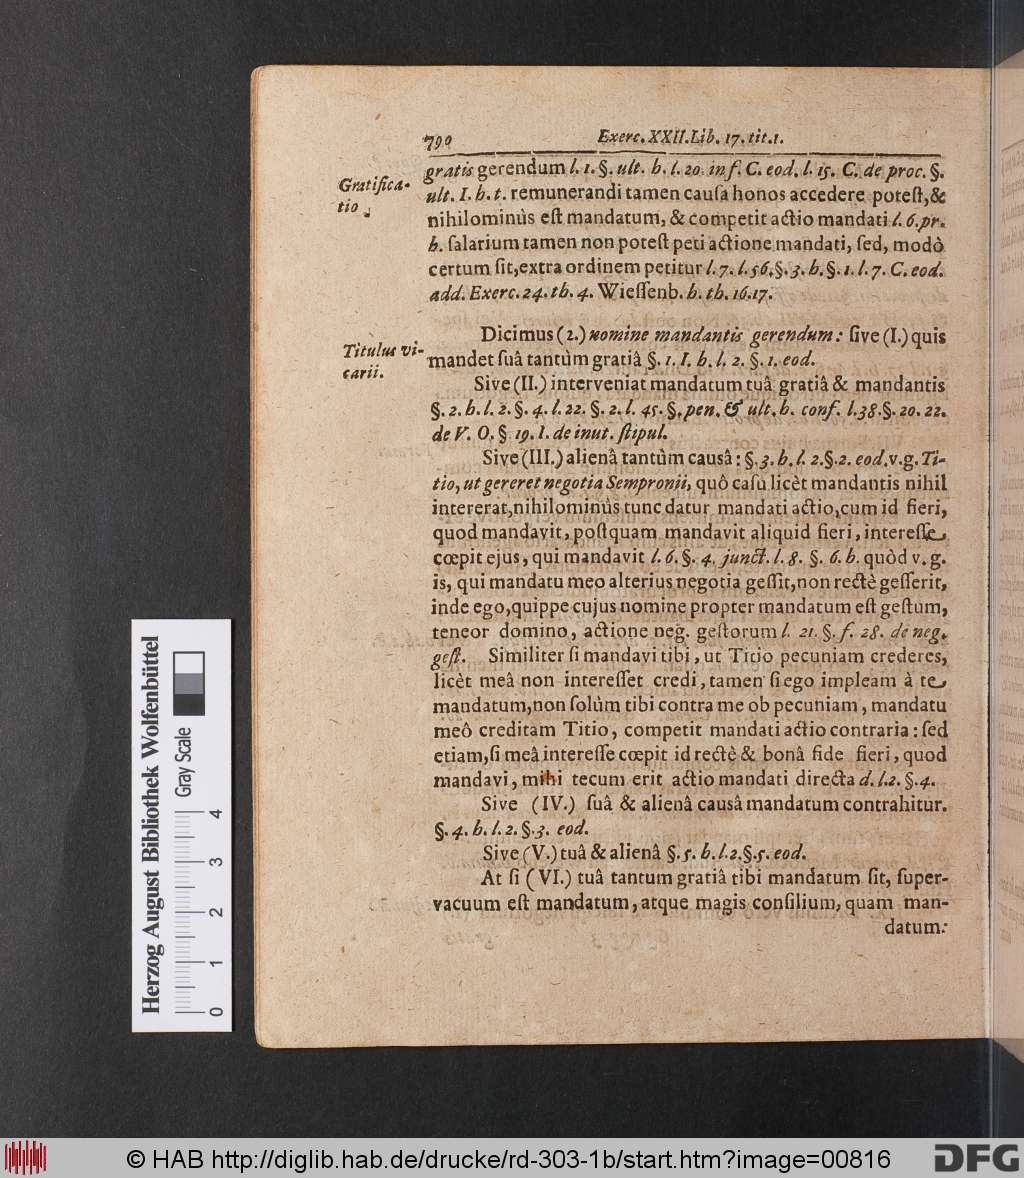 790 Exerc. XXII. Lib. 17. tit. 1.
Gratifica-
tio.
gratis gerendum l. 1. §. ult. h. l. 20. inf. C. eod. l. 15. C. de proc. §.
ult. I. h. t. remunerandi tamen cauſa honos accedere poteſt, &
nihilominùs eſt mandatum, & competit actio mandati l. 6. pr.
h. ſalarium tamen non poteſt peti actione mandati, ſed, modò
certum ſit, extra ordinem petitur l. 7. l. 56. §. 3. h. §. 1. l. 7. C. eod.
add. Exerc. 24. th. 4. Wieſſenb. h. th. 16. 17.
Titulus vi-
carii.
Dicimus (2.) nomine mandantis gerendum: ſive (I.) quis
mandet ſuâ tantùm gratiâ §. 1. I. h. l. 2. §. 1. eod.
Sive (II.) interveniat mandatum tuâ gratiâ & mandantis
§. 2. h. l. 2. §. 4. l. 22. §. 2. l. 45. §. pen. & ult. h. conf. l. 38. §. 20. 22.
de V. O. § 19. I. de inut. ſtipul.
Sive (III.) alienâ tantùm causâ: §. 3. h. l. 2. §. 2. eod. v. g. Ti-
tio, ut gereret negotia Sempronii, quô caſu licèt mandantis nihil
intererat, nihilominùs tunc datur mandati actio, cum id fieri,
quod mandavit, poſtquam mandavit aliquid fieri, intereſſe
cœpit ejus, qui mandavit l. 6. §. 4. junct. l. 8. §. 6. h. quòd v. g.
is, qui mandatu meo alterius negotia geſſit, non rectè geſſerit,
inde ego, quippe cujus nomine propter mandatum eſt geſtum,
teneor domino, actione neg. geſtorum l. 21. §. f. 28. de neg.
geſt. Similiter ſi mandavi tibi, ut Titio pecuniam crederes,
licèt meâ non intereſſet credi, tamen ſi ego impleam à te
mandatum, non ſolùm tibi contra me ob pecuniam, mandatu
meô creditam Titio, competit mandati actio contraria: ſed
etiam, ſi meâ intereſſe cœpit id rectè & bonâ fide fieri, quod
mandavi, mihi tecum erit actio mandati directa d. l. 2. §. 4.
Sive (IV.) ſuâ & alienâ causâ mandatum contrahitur.
§. 4. h. l. 2. §. 3. eod.
Sive (V.) tuâ & alienâ §. 5. h. l. 2. §. 5. eod.
At ſi (VI.) tuâ tantum gratiâ tibi mandatum ſit, ſuper-
vacuum eſt mandatum, atque magis conſilium, quam man-
datum:
Herzog August Bibliothek Wolfenbüttel
Gray Scale
0 1 2 3 4
© HAB http://diglib.hab.de/drucke/rd-303-1b/start.htm?image=00816
DFG